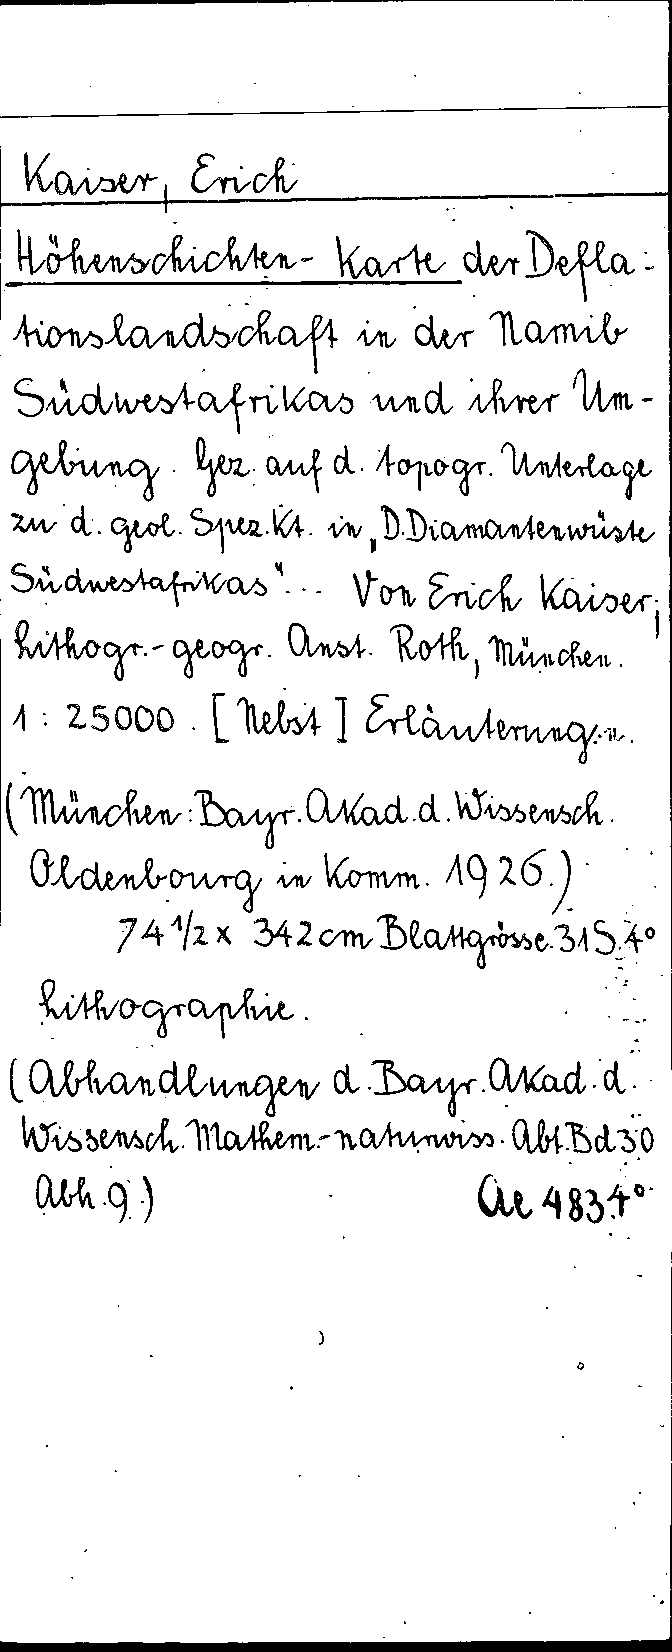 Kaiser, Erich
Höhenschichten-Karte der Defla-
tionslandschaft in der Namib
Südwestafrikas und ihrer Um-
gebung. Gez. auf d. topogr. Unterlage
zu d. geol. Spez.Kt. in „D. Diamantenwüste
Südwestafrikas"... Von Erich Kaiser;
Lithogr.-geogr. Anst. Roth, München.
1 : 25000. [Nebst] Erläuterungen.
(München: Bayr. Akad. d. Wissensch.
Oldenbourg in Komm. 1926.)
74 1/2 x 342 cm Blattgrösse. 31 S. 4°
Lithographie.
(Abhandlungen d. Bayr. Akad. d.
Wissensch. Mathem.-naturwiss. Abt. Bd 30
Abh. 9.) Ae 483 4°